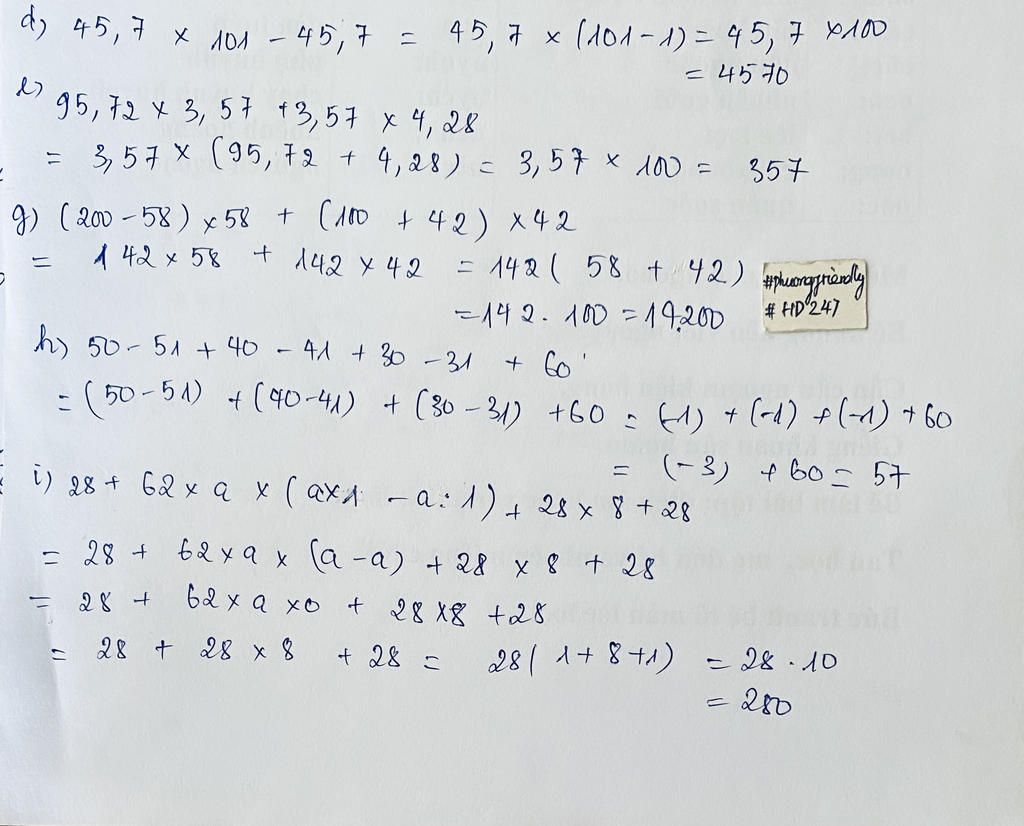 d) 45,7 × 101 - 45,7 = 45,7 × (101-1) = 45,7 ×100
= 4570
e)
95,72 × 3,57 +3,57 × 4,28
= 3,57 × (95,72 + 4,28) = 3,57 × 100 = 357
g) (200-58) ×58 + (100 + 42) ×42
= 142×58 + 142×42 = 142( 58 + 42)
=142. 100 =14.200
#phuongfriendly
# HD 247
h) 50-51 + 40 - 41 + 30 -31 + 60
=(50-51) +(40-41) +(30-31) +60 = (-1) +(-1) +(-1) +60
= (-3) +60 = 57
i) 28+ 62×a ×(a×1 -a:1) + 28×8+28
= 28 + 62×a × (a-a) +28 ×8 + 28
= 28 + 62×a ×0 + 28×8 +28
= 28 + 28 × 8 + 28 = 28( 1+8+1) = 28 . 10
= 280